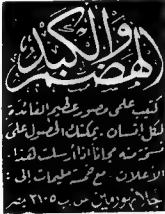 الهضم والكبد
كتيب علمى مصور عظيم الفائدة
لكل انسان. يمكنك الحصول على
نسخة منه مجاناً اذا ارسلت هذا
الاعلان - مع خمسة مليمات الى:
ص.ب ٢١٠٥ مصر